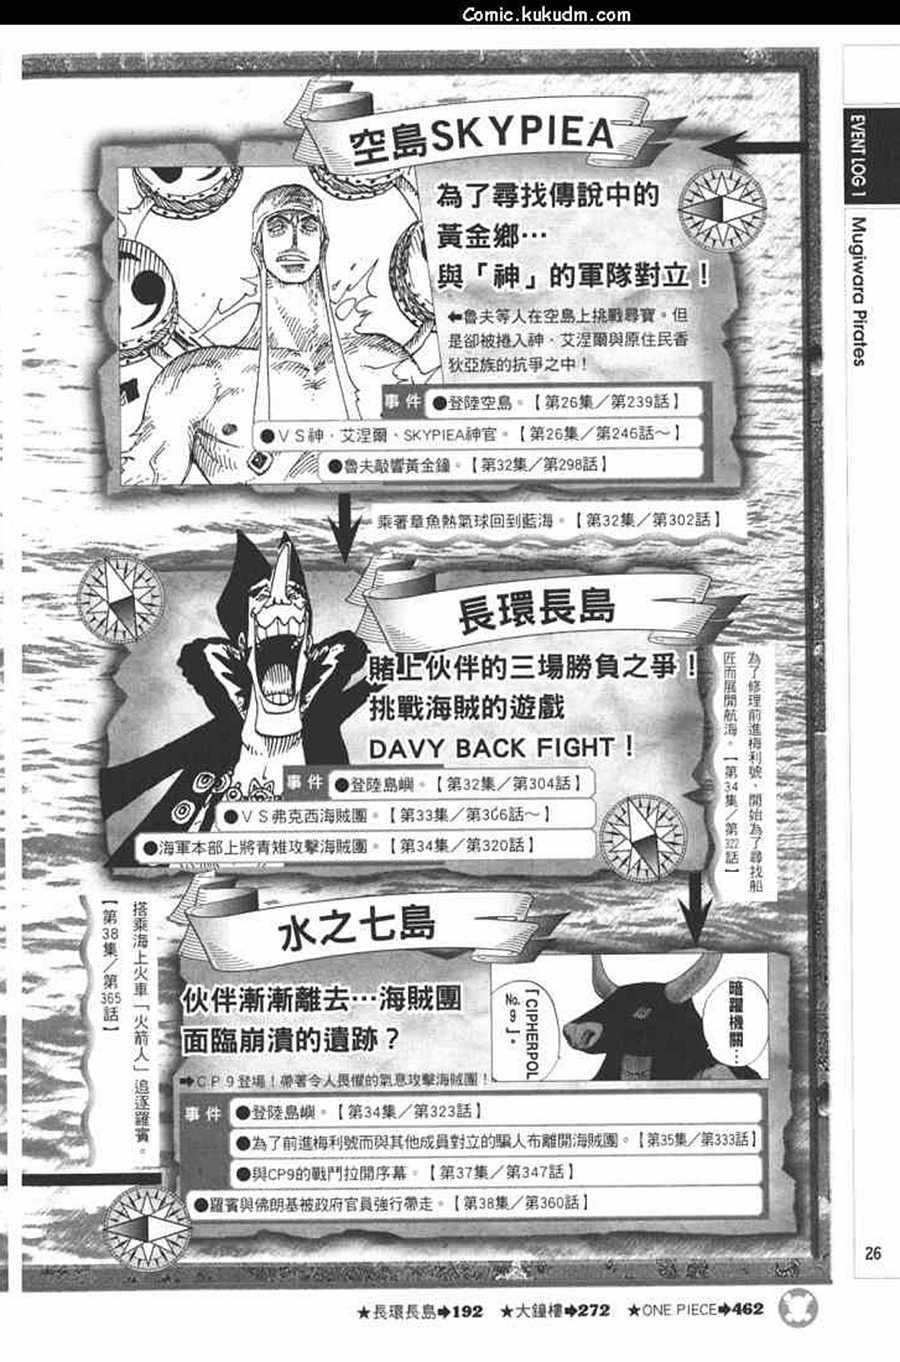 Comic.kukudm.com
EVENT LOG 1
Mugiwara Pirates
空島SKYPIEA
為了尋找傳說中的
黃金鄉…
與「神」的軍隊對立！
⬅魯夫等人在空島上挑戰尋寶。但
是卻被捲入神．艾涅爾與原住民香
狄亞族的抗爭之中！
事件
●登陸空島。【第26集／第239話】
●ＶＳ神．艾涅爾、SKYPIEA神官。【第26集／第246話～】
●魯夫敲響黃金鐘。【第32集／第298話】
乘著章魚熱氣球回到藍海。【第32集／第302話】
長環長島
賭上伙伴的三場勝負之爭！
挑戰海賊的遊戲
DAVY BACK FIGHT！
事件
●登陸島嶼。【第32集／第304話】
●ＶＳ弗克西海賊團。【第33集／第306話～】
●海軍本部上將青雉攻擊海賊團。【第34集／第320話】
為了修理前進梅利號，開始為了尋找船
匠而展開航海。【第34集／第322話】
水之七島
伙伴漸漸離去…海賊團
面臨崩潰的遺跡？
暗躍機關…
「CIPHERPOL
No.9」。
➡ＣＰ９登場！帶著令人畏懼的氣息攻擊海賊團！
事件
●登陸島嶼。【第34集／第323話】
●為了前進梅利號而與其他成員對立的騙人布離開海賊團。【第35集／第333話】
●與CP9的戰鬥拉開序幕。【第37集／第347話】
●羅賓與佛朗基被政府官員強行帶走。【第38集／第360話】
搭乘海上火車「火箭人」追逐羅賓。
【第38集／第365話】
26
★長環長島➡192 ★大鐘樓➡272 ★ONE PIECE➡462